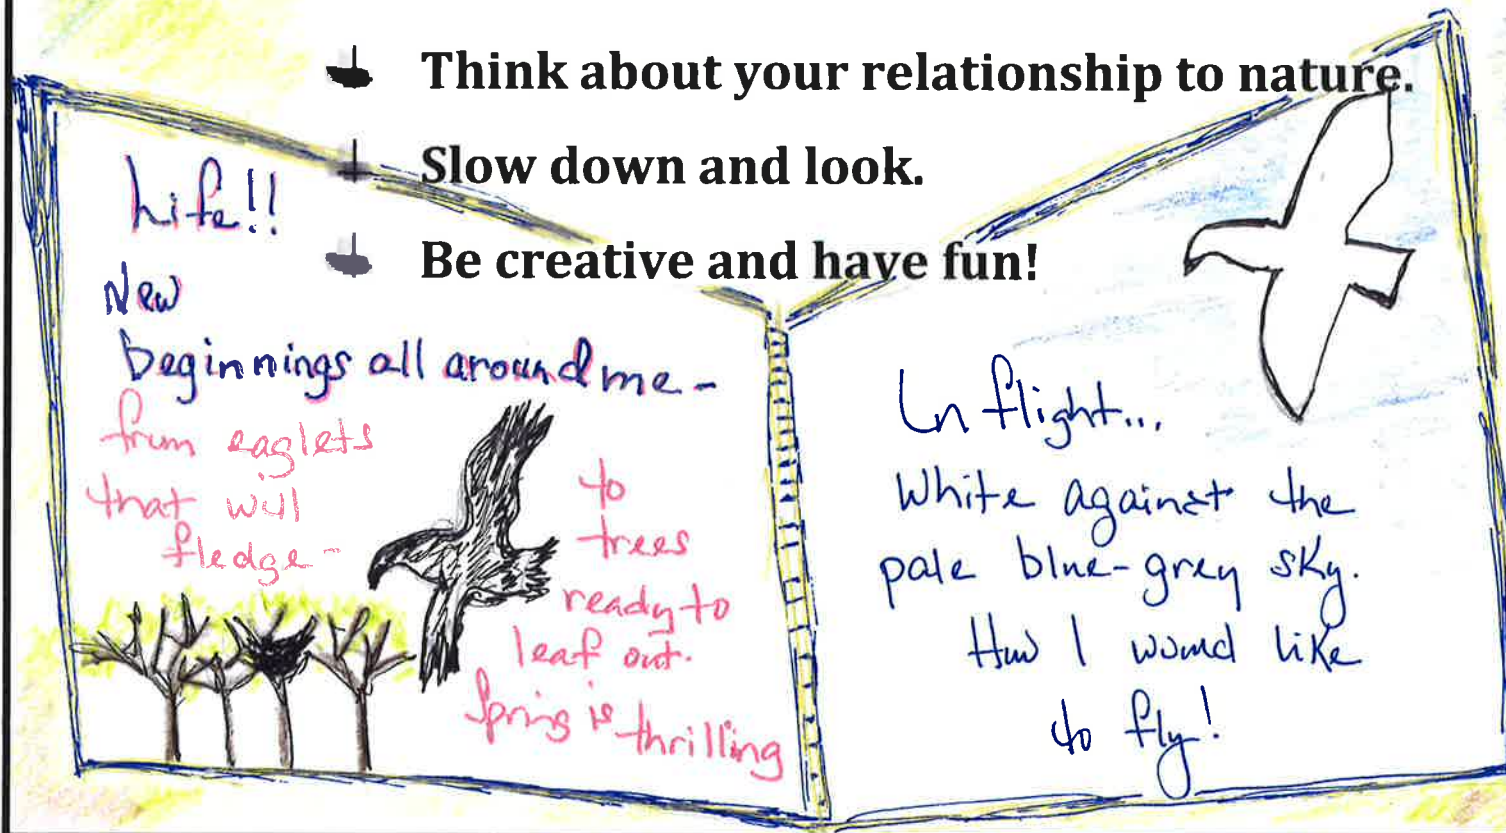 Think about your relationship to nature.
Slow down and look.
Be creative and have fun!
Life!!
New
beginnings all around me -
from eaglets
that will
fledge -
to
trees
ready to
leaf out.
Spring is thrilling
In flight...
White against the
pale blue-grey sky.
How I would like
to fly!